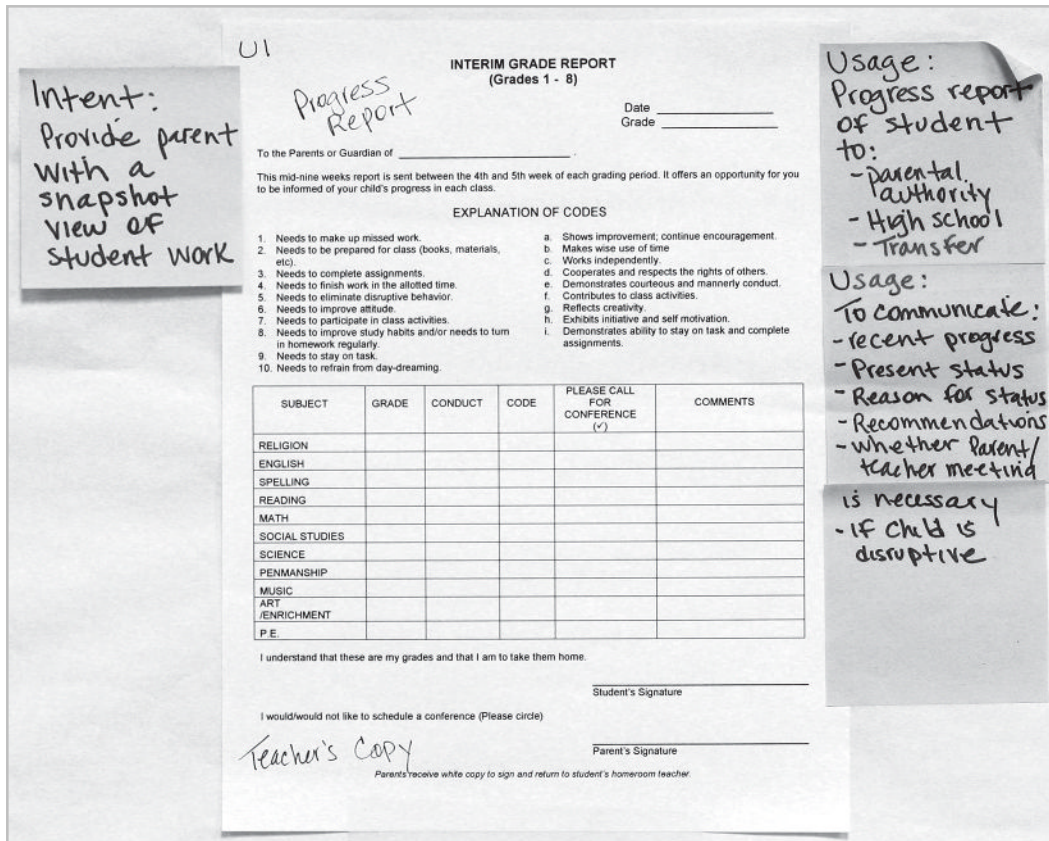 Intent:
Provide parent
with a
snapshot
view of
student work
U1
Progress
Report
INTERIM GRADE REPORT
(Grades 1 - 8)
Date
Grade
To the Parents or Guardian of .
This mid-nine weeks report is sent between the 4th and 5th week of each grading period. It offers an opportunity for you
to be informed of your child's progress in each class.
EXPLANATION OF CODES
1. Needs to make up missed work.
2. Needs to be prepared for class (books, materials,
etc).
3. Needs to complete assignments.
4. Needs to finish work in the allotted time.
5. Needs to eliminate disruptive behavior.
6. Needs to improve attitude.
7. Needs to participate in class activities.
8. Needs to improve study habits and/or needs to turn
in homework regularly.
9. Needs to stay on task.
10. Needs to refrain from day-dreaming.
a. Shows improvement; continue encouragement.
b. Makes wise use of time
c. Works independently.
d. Cooperates and respects the rights of others.
e. Demonstrates courteous and mannerly conduct.
f. Contributes to class activities.
g. Reflects creativity.
h. Exhibits initiative and self motivation.
i. Demonstrates ability to stay on task and complete
assignments.
SUBJECT GRADE CONDUCT CODE PLEASE CALL
FOR
CONFERENCE
(✓) COMMENTS
RELIGION
ENGLISH
SPELLING
READING
MATH
SOCIAL STUDIES
SCIENCE
PENMANSHIP
MUSIC
ART
/ENRICHMENT
P.E.
I understand that these are my grades and that I am to take them home.
Student's Signature
I would/would not like to schedule a conference (Please circle)
Teacher's Copy
Parent's Signature
Parents receive white copy to sign and return to student's homeroom teacher.
Usage:
Progress report
of student
to:
- parental
authority
- High school
- Transfer
Usage:
To communicate:
- recent progress
- Present status
- Reason for status
- Recommendations
- whether Parent/
teacher meeting
is necessary
- if child is
disruptive